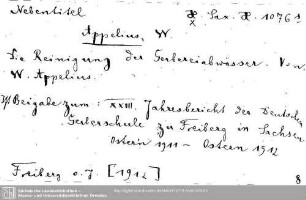 Nebentitel
Sax. 1076 1
Appelius, W.
Die Reinigung der Gerbereiabwässer. Von
W. Appelius.
Ist Beigabe zum: XXIII. Jahresbericht der Deutschen
Gerberschule zu Freiberg in Sachsen
Ostern 1911 - Ostern 1912
Freiberg o. J. [1912]
8